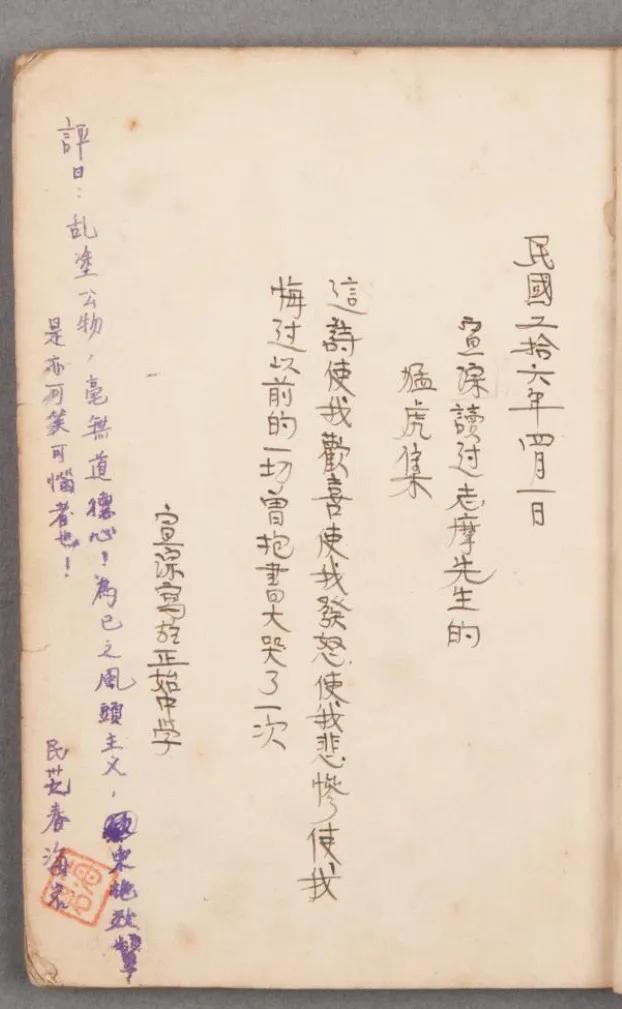 民國二拾六年四月一日
宣深讀过志摩先生的
猛虎集
這詩使我歡喜使我發怒使我悲慘使我
悔过以前的一切曾抱書大哭了一次
宣深寫於正始中学
評曰：乱塗公物，毫無道德心！為己之風頭主义，東施效顰
是亦可笑可惱者也！
民廿九春海